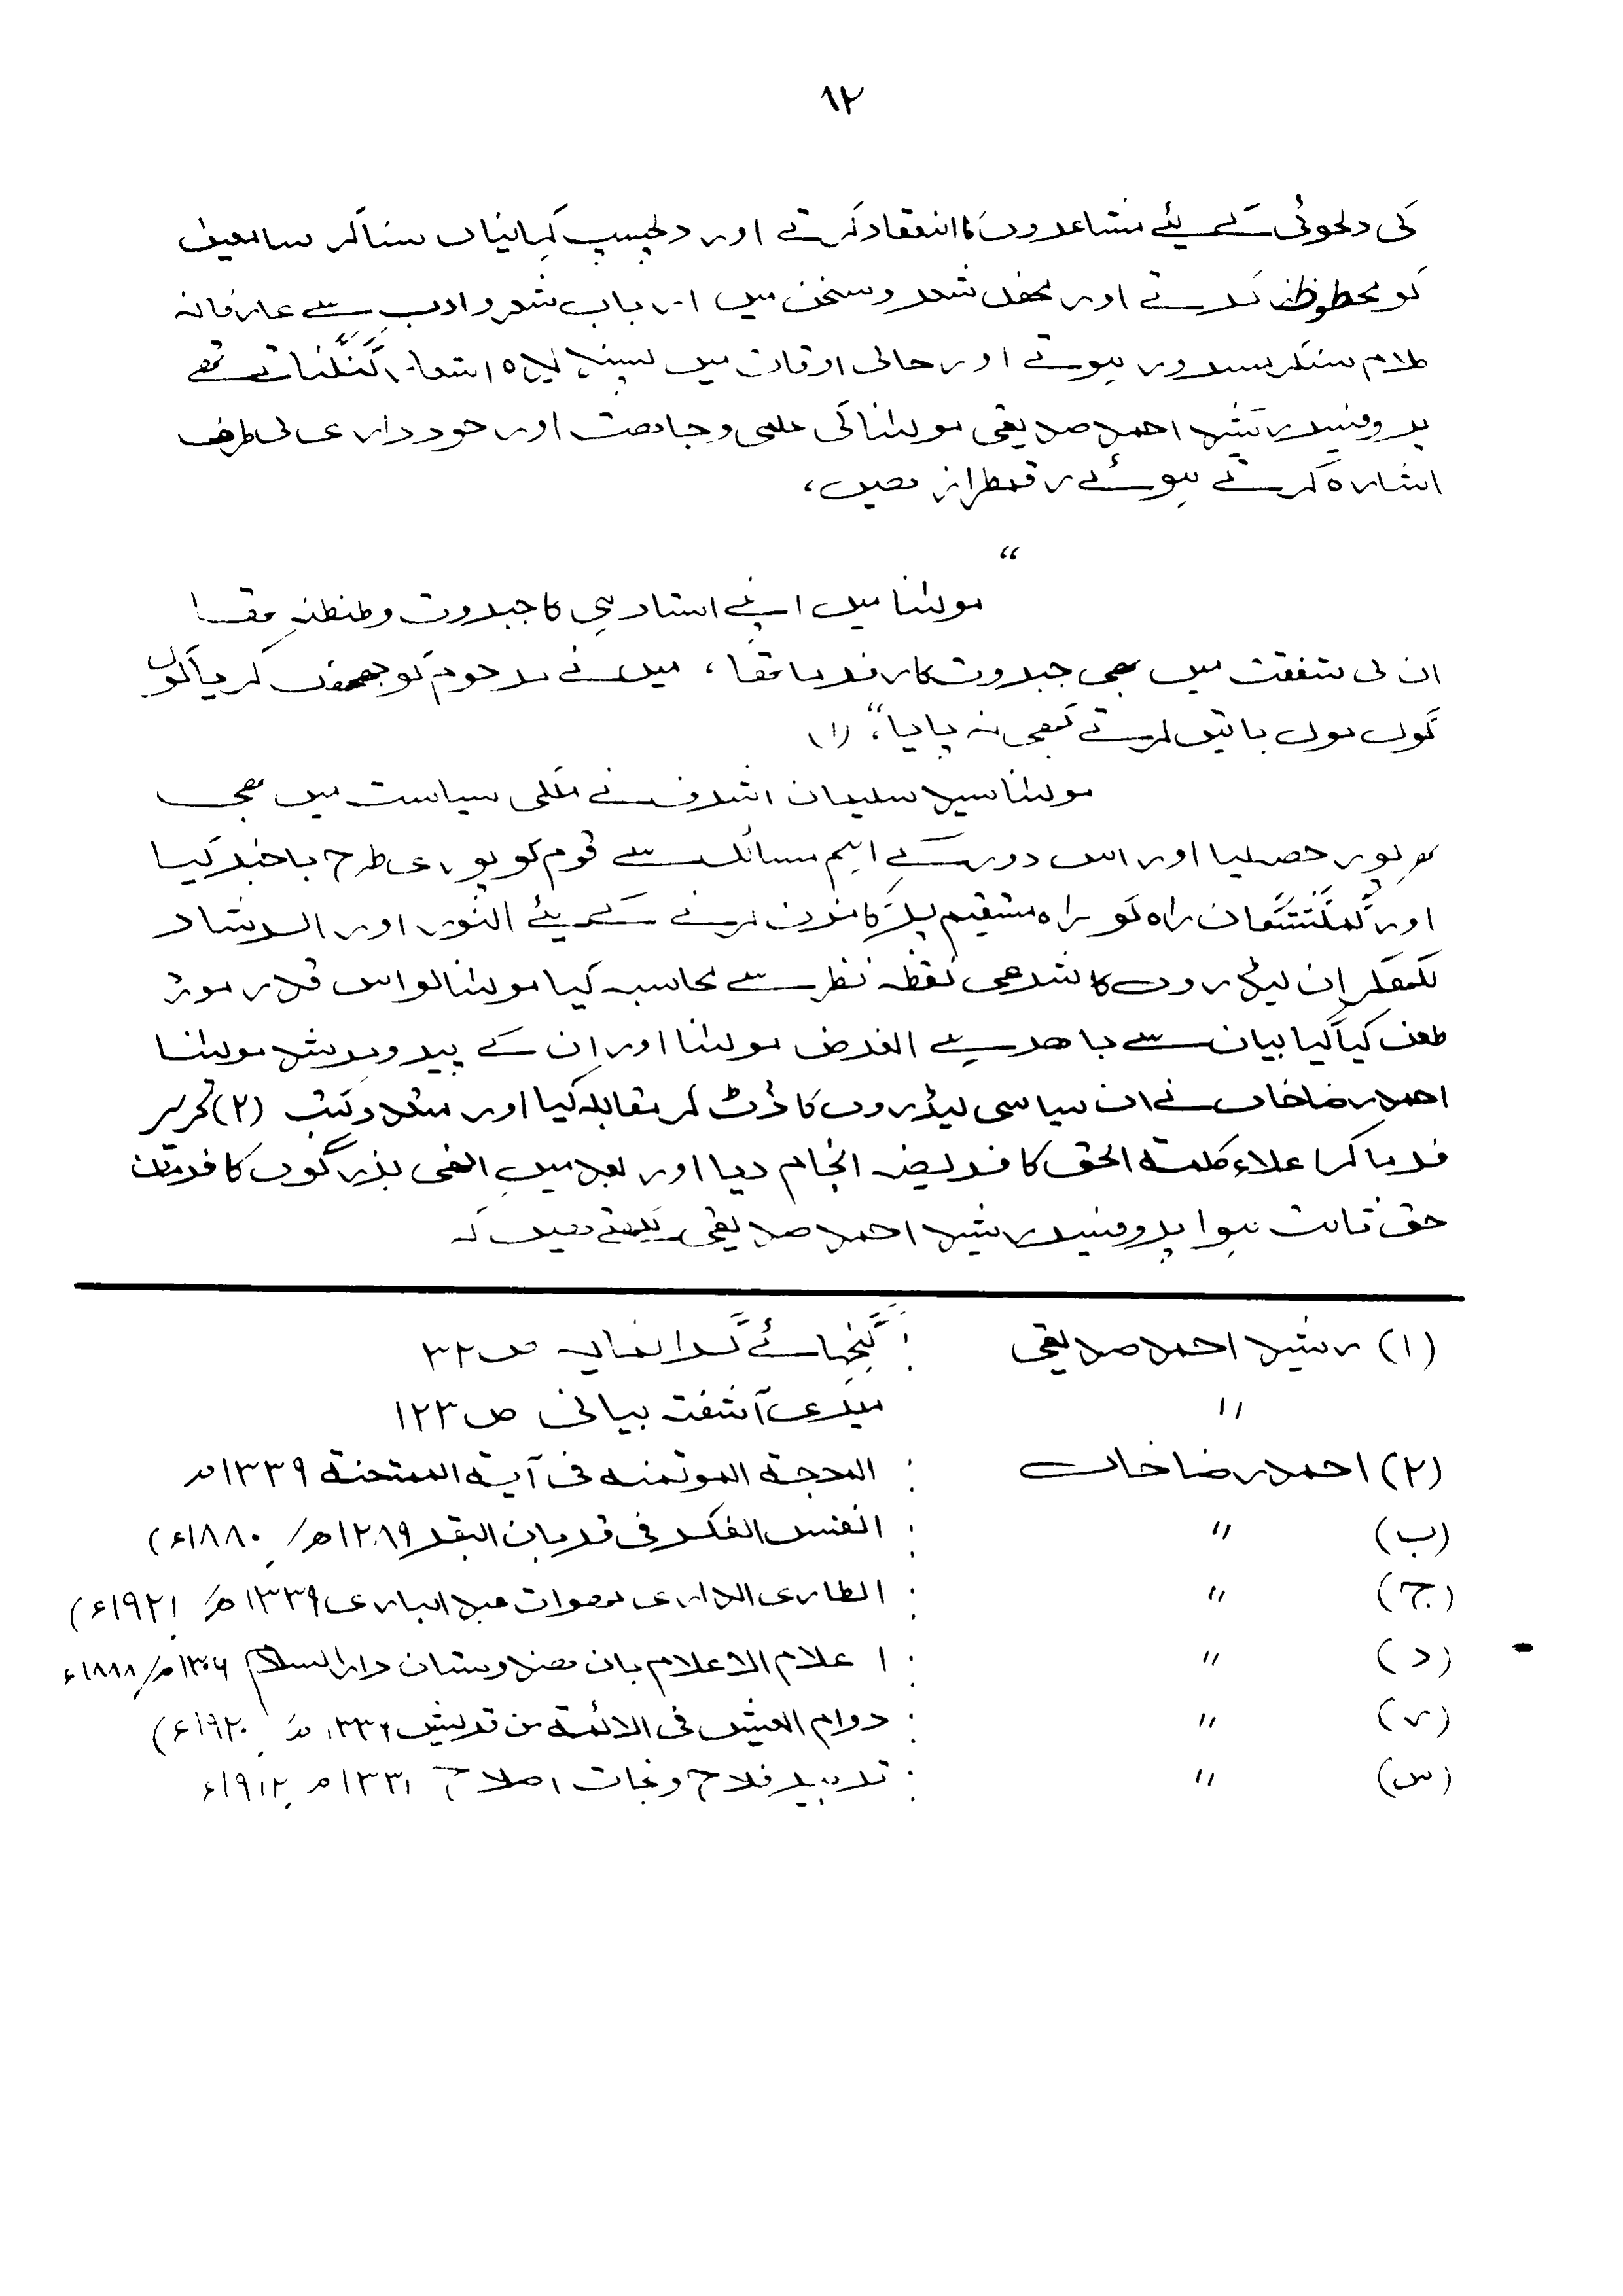 ۱۲
کی دلجوئی کے لیئے مشاعروں کا انعقاد کرتے اور دلچسپ کہانیاں سنا کر سامعین
کو محظوظ کرتے اور محفل شعر و سخن میں ارباب شعر و ادب سے عارفانہ
کلام سنکر مسرور ہوتے اور خالی اوقات میں پسندیدہ اشعار گنگناتے تھے
پروفیسر رشید احمد صدیقی مولٰنا کی علمی وجاہت اور خودداری کی طرف
اشارہ کرتے ہوئے رقمطراز ہیں،
“
مولٰنا میں اپنے استاد ہی کا جبروت و طنطنہ تھا
ان کی شفقت میں بھی جبروت کارفرما تھا، میں نے مرحوم کو جھک کر یا گول
گول مول باتیں کرتے کبھی نہ پایا،“ (۱)
مولٰنا سید سلیمان اشرف نے ملکی سیاست میں بھی
بھرپور حصہ لیا اور اس دور کے اہم مسائل سے قوم کو پوری طرح باخبر کیا
اور گمگشتگان راہ کو راہ مستقیم پر گامزن کرنے کے لیئے النور اور الرشاد
لکھکر ان لیڈروں کا شرعی نقطہ نظر سے محاسبہ کیا مولٰنا کو اس قدر مورد
طعن کیا گیا بیان سے باہر ہے الغرض مولٰنا اور ان کے پیر و مرشد مولٰنا
احمد رضا خاں نے ان سیاسی لیڈروں کا ڈٹ کر مقابلہ کیا اور متعدد کتب (۲) تحریر
فرما کر اعلاء کلمۃ الحق کا فریضہ انجام دیا اور بعد میں انھی بزرگوں کا فرمان
حق ثابت ہوا پروفیسر رشید احمد صدیقی لکھتے ہیں کہ
(۱) رشید احمد صدیقی : گنجہائے گرانمایہ ص ۳۲
〃 میری آشفتہ بیانی ص ۱۲۳
(۲) احمد رضا خاں : المحجۃ الموتمنہ فی آیۃ الممتحنۃ ۱۳۳۹ھ
(ب) 〃 : انفس الفکر فی قربان البقر ۱۲۸۹ھ/ ۱۸۸۰ء)
(ج) 〃 : الطاری الداری لہفوات عبد الباری ۱۳۳۹ھ/ ۱۹۲۱ء)
(د) 〃 : اعلام الاعلام بان ہندوستان دار السلام ۱۳۰۶ھ/ ۱۸۸۸ء
(ر) 〃 : دوام العیش فی الائمۃ من قریش ۱۳۳۹ھ ۱۹۲۰ء)
(س) 〃 : تدبیر فلاح و نجات اصلاح ۱۳۳۱ھ ۱۹۱۲ء